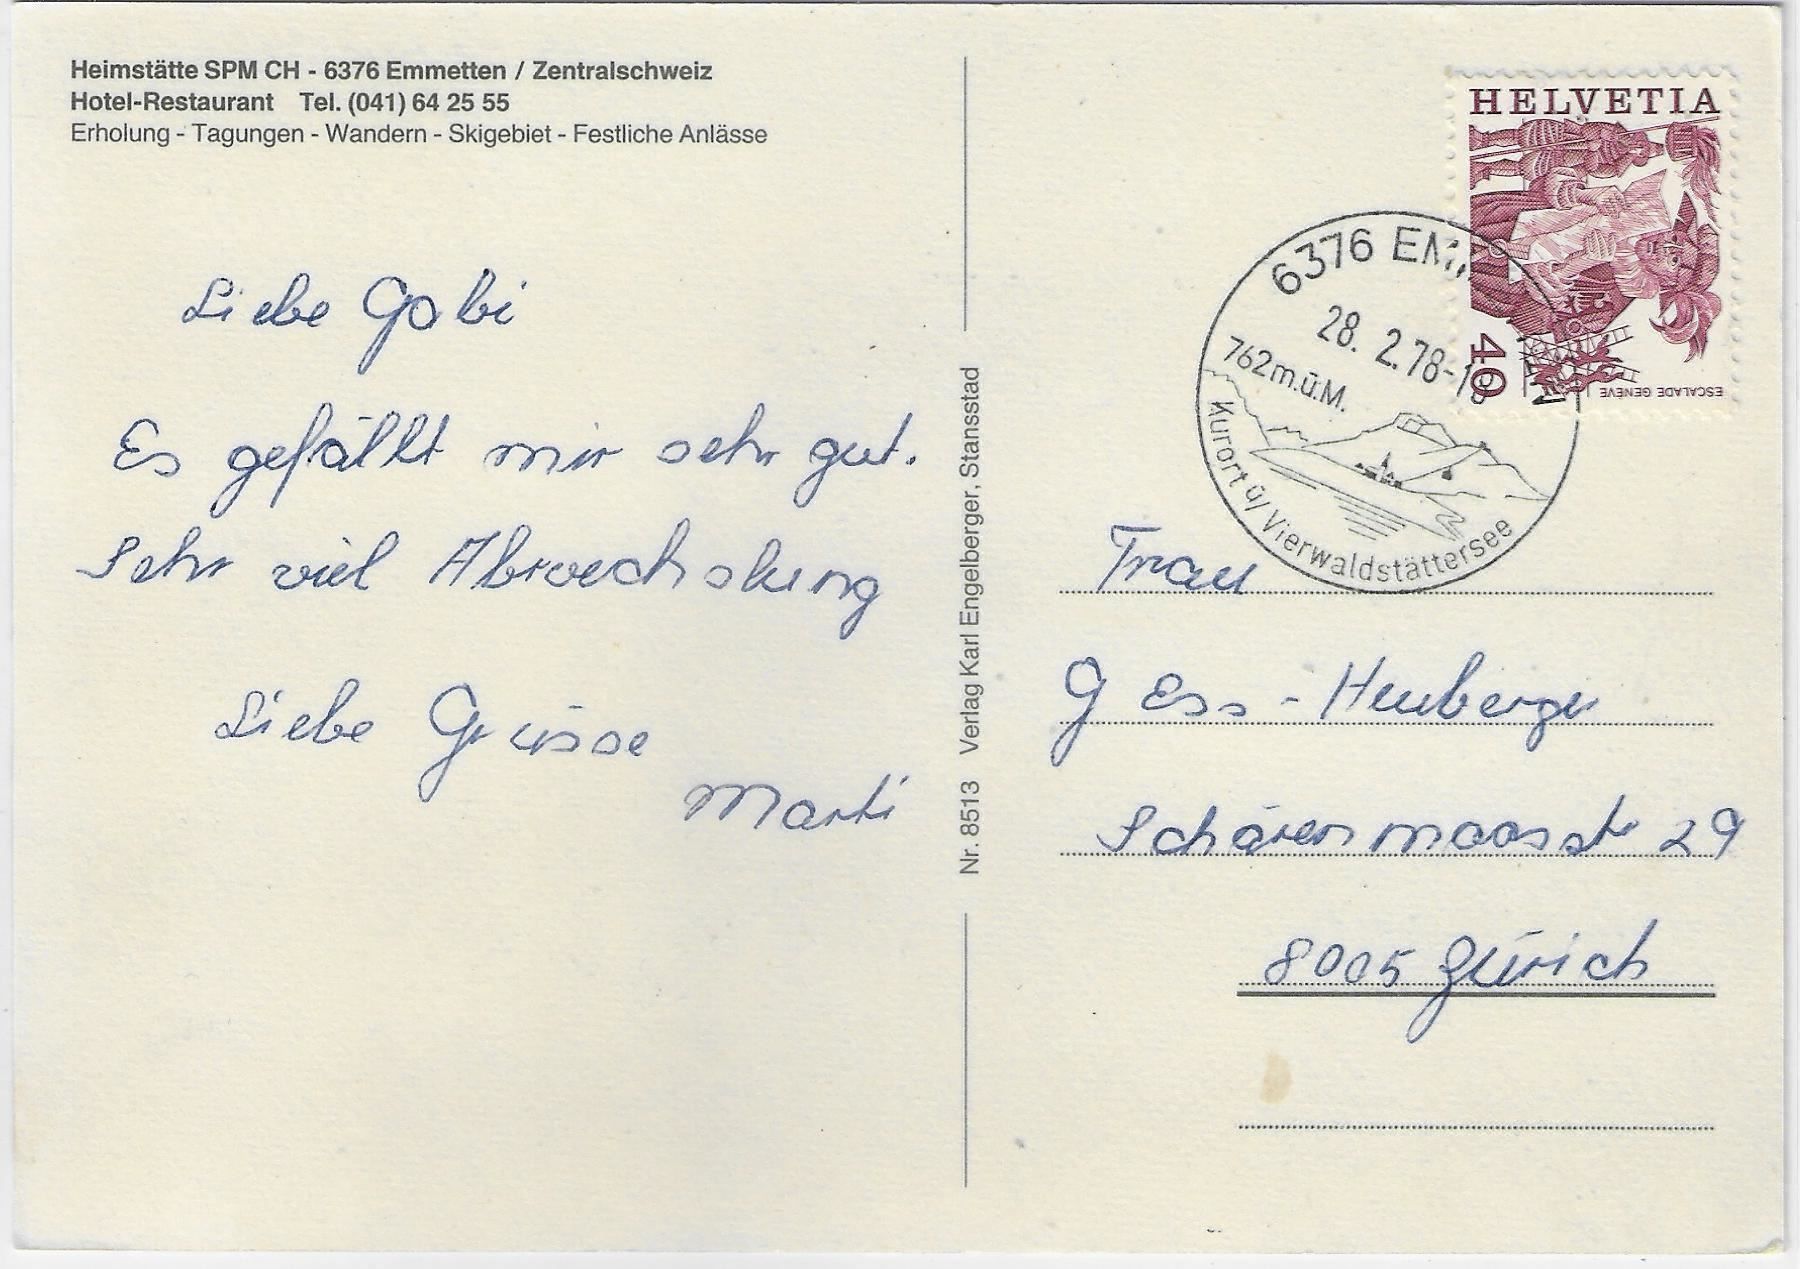 Heimstätte SPM CH - 6376 Emmetten / Zentralschweiz
Hotel-Restaurant Tel. (041) 64 25 55
Erholung - Tagungen - Wandern - Skigebiet - Festliche Anlässe
Liebe Gobi
Es gefällt mir sehr gut.
Sehr viel Abwechslung
Liebe Grüsse
Marti
Nr. 8513 Verlag Karl Engelberger, Stansstad
HELVETIA
40
ESCALADE GENÈVE
6376
28. 2.78-
762 m.ü.M.
Kurort ü/Vierwaldstättersee
Frau
G Ess - Heuberger
Schärenmoosstr 29
8005 Zürich